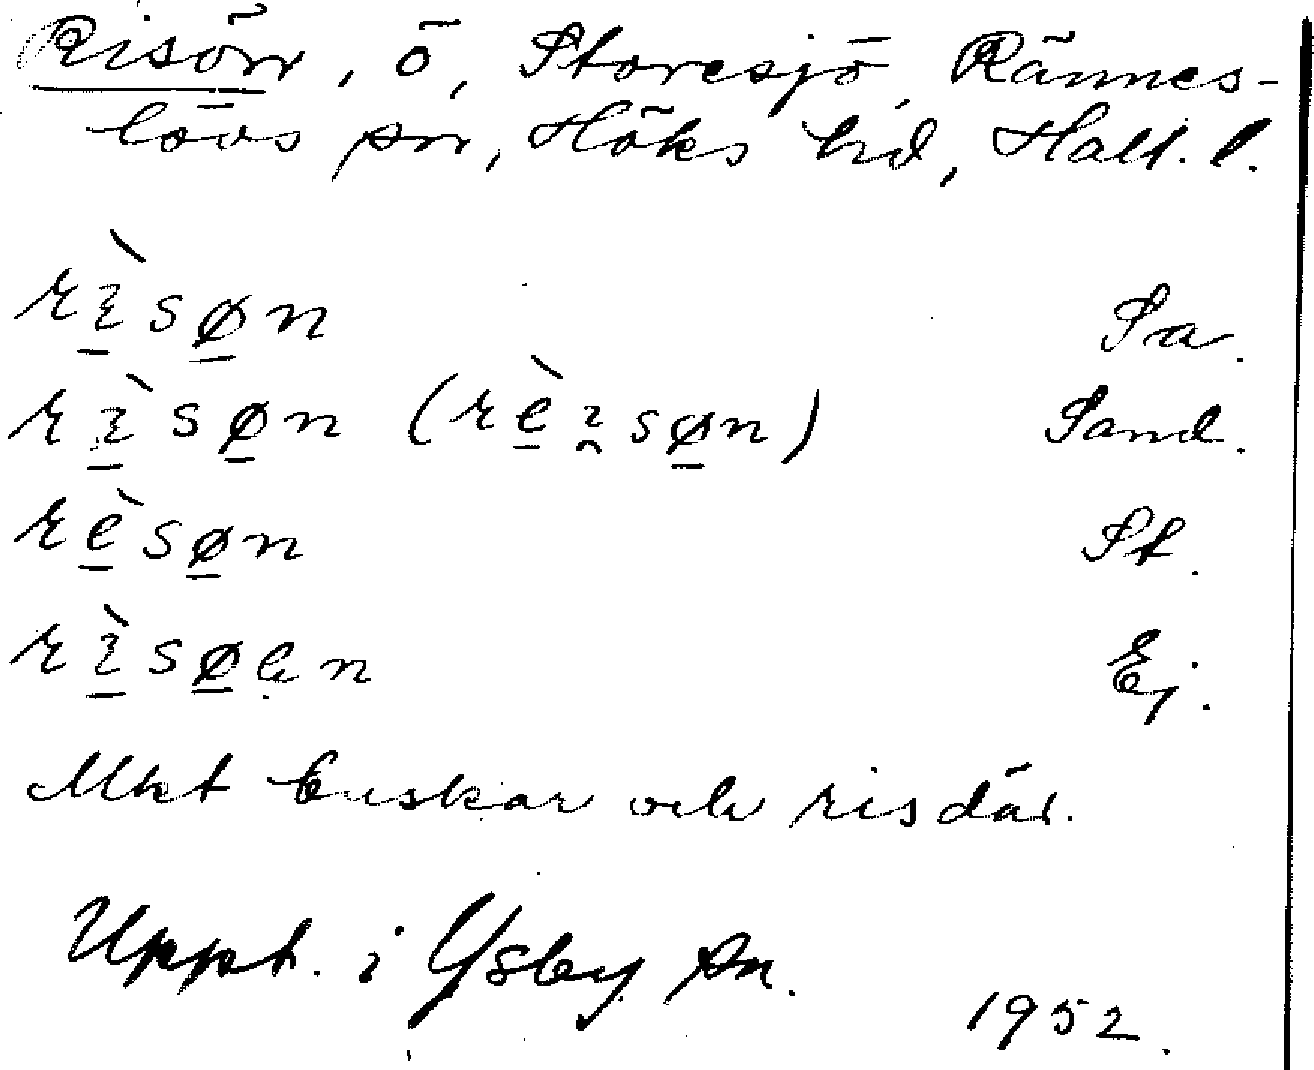 Risön, ö, Storesjö, Rännes-
lövs sn, Höks hd, Hall. l.
rìsøn Sa.
rìsøn (rèisøn) Sand.
rèsøn St.
rìsøen Ej.
Mkt buskar och ris där.
Uppt. i Ysby sn.
1952.